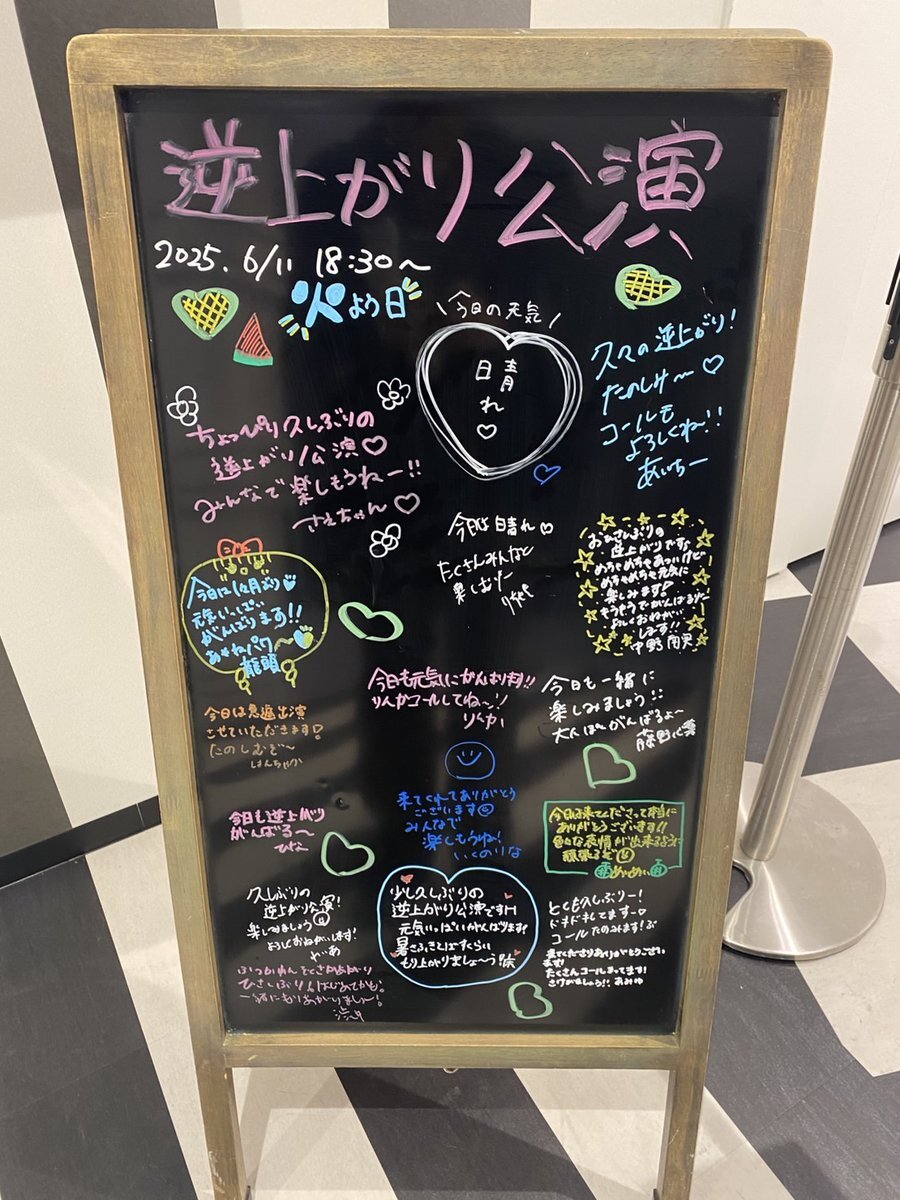 逆上がり公演
2025.6/11 18:30〜
火よう日
\今日の元気/
晴れ♡
久々の逆上がり！
たのしみ〜♡
コールも
よろしくね!!
あいちー
ちょっぴり久しぶりの
逆上がり公演♡
みんなで楽しもうねー!!
さえちゃん♡
今日は晴れ♡
たくさんみんなと
楽しむたー
おひさしぶりの
逆上がりです
めちゃめちゃあついけど
めちゃめちゃ元気に
楽しみます!
よろしくおねがい
します!!
今日は
元気いっぱい
がんばります!!
龍頭
今日も元気にがんばります!!
りんかコールしてね〜!
りんか
今日も一緒に
楽しみましょう!!
がんばるよ〜
藤野心葉
今日は急遽出演
させていただきます!
たのしむぞ〜
はんちゃか
来てくれてありがとう
ございます
みんなで
楽しもうね!
いくのりな
今日も逆上がり
がんばる〜
ひな
今日は来てくださって本当に
ありがとうございます!!
色々な表情が出来るように
頑張るぞ
めいめい
久しぶりの
逆上がり公演!
楽しみましょう
よろしくおねがいします!
少し久しぶりの
逆上がり公演です
元気いっぱいがんばります!
暑さふきとばすくらい
もり上がりましょ〜!
とても久しぶりー!
ドキドキしてます
コールたのみます!
来てくださりありがとうござい
ます!
たくさんコールまってます!
さけびましょう!! あみゆ
一緒にもりあがりましょ〜!